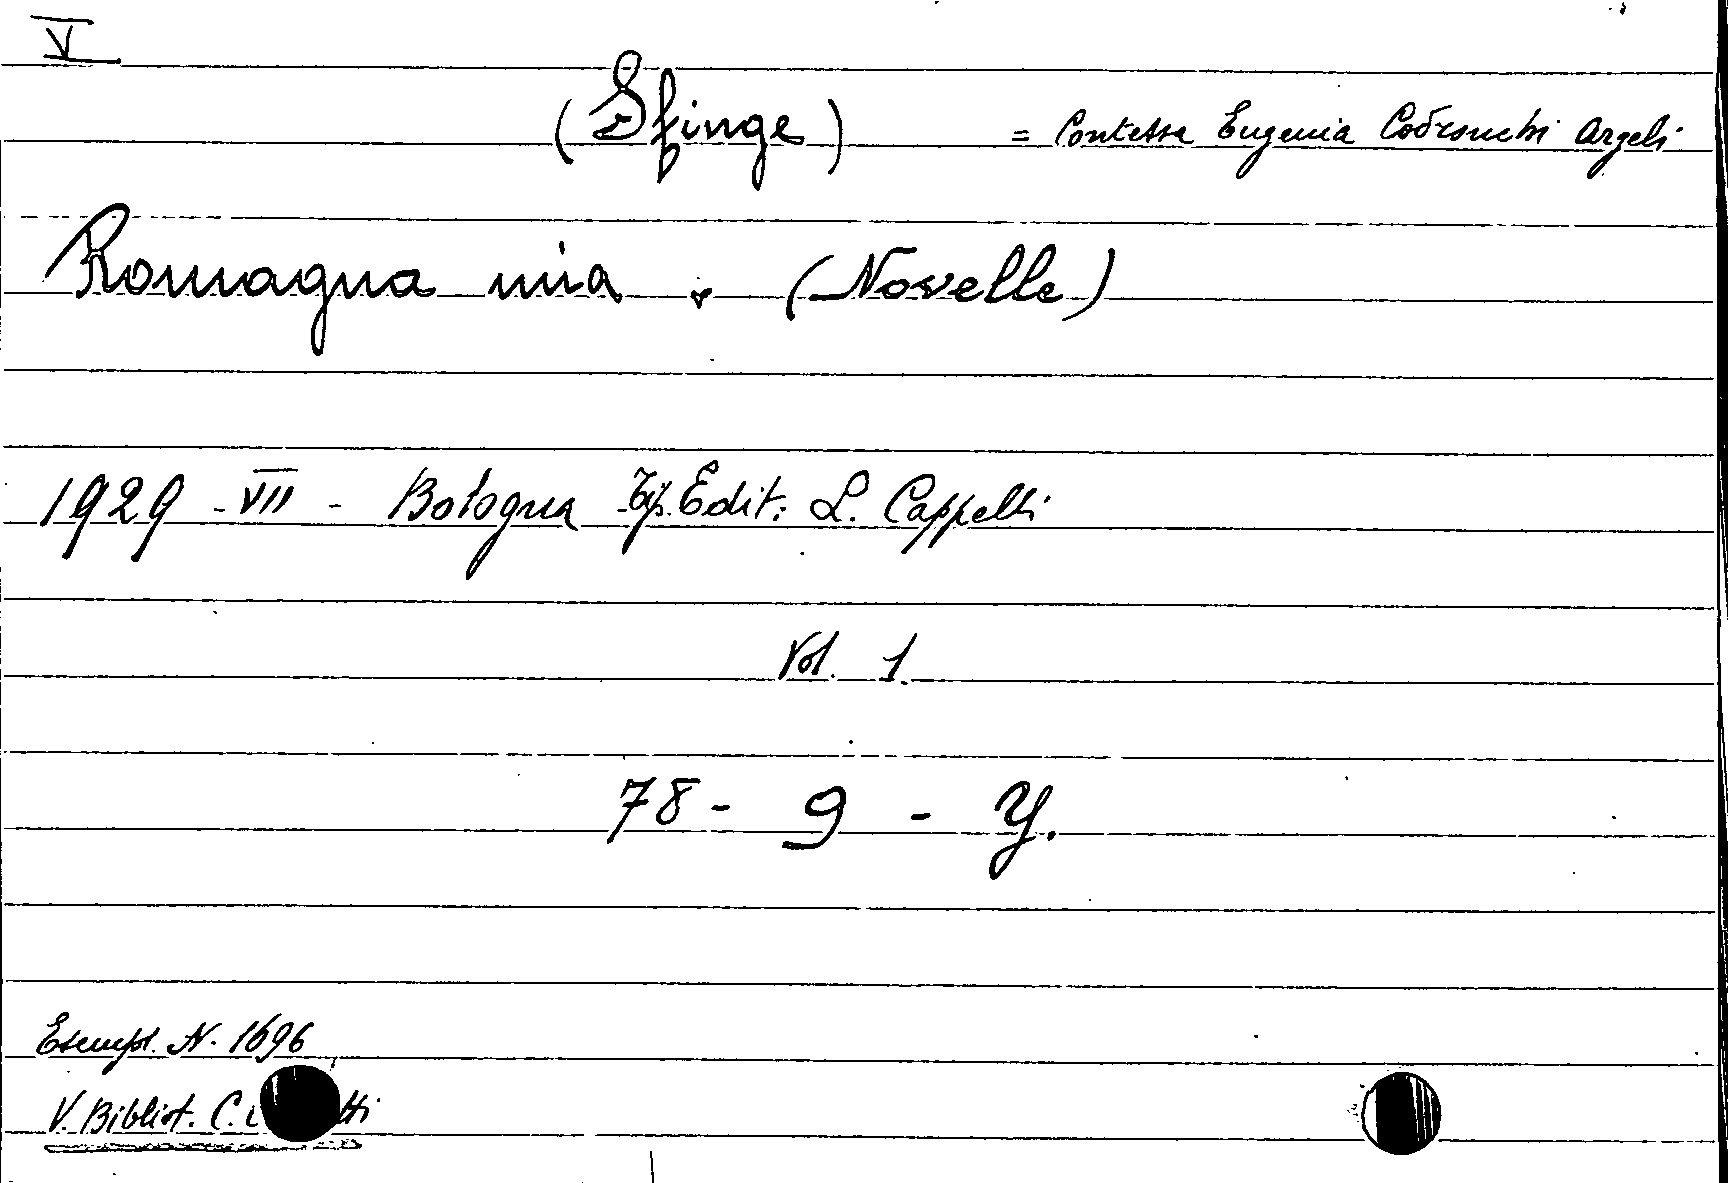 V
(Sfinge) = Contessa Eugenia Codronchi Argeli
Romagna mia. (Novelle)
1929 - VII - Bologna Tip. Edit: L. Cappelli
Vol. 1.
78 - 9 - Y.
Esempl. N. 1696
V. Bibliot. C.